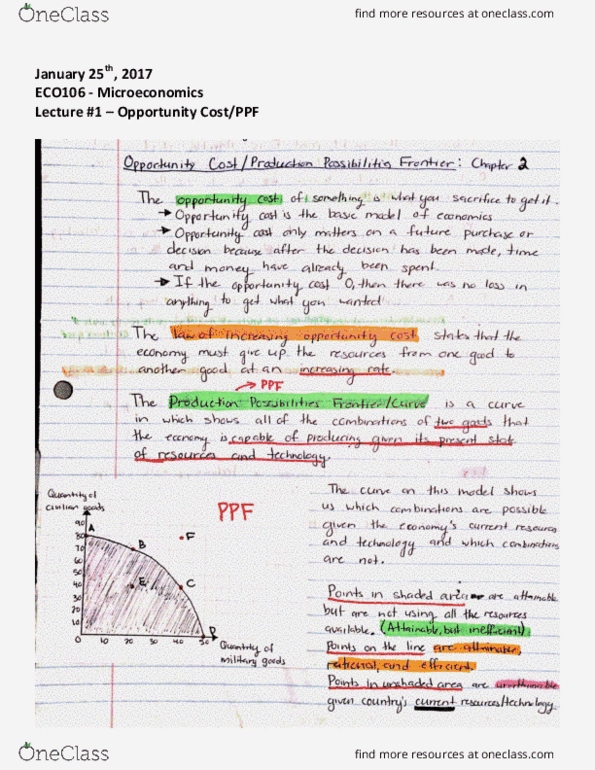 OneClass
find more resources at oneclass.com
January 25th, 2017
ECO106 - Microeconomics
Lecture #1 – Opportunity Cost/PPF
Opportunity Cost/Production Possibilities Frontier: Chapter 2
The opportunity cost of something is what you sacrifice to get it.
→ Opportunity cost is the basic model of economics
→ Opportunity cost only matters on a future purchase or
decision because after the decision has been made, time
and money have already been spent.
→ If the opportunity cost 0, then there was no loss in
anything to get what you wanted
The law of increasing opportunity cost states that the
economy must give up the resources from one good to
another good at an increasing rate.
→ PPF
The Production Possibilities Frontier/Curve is a curve
in which shows all of the combinations of two goods that
the economy is capable of producing given its present state
of resources and technology.
Quantity of
civilian goods
PPF
90
80
70
60
50
40
30
20
10
A
B
F
E
C
D
10 20 30 40 50
Quantity of
military goods
The curve on this model shows
us which combinations are possible
given the economy's current resources
and technology and which combinations
are not.
Points in shaded area are attainable
but are not using all the resources
available. (Attainable, but inefficient).
Points on the line are attainable,
rational, and efficient.
Points in unshaded area are
given country's current resources/technology
OneClass
find more resources at oneclass.com